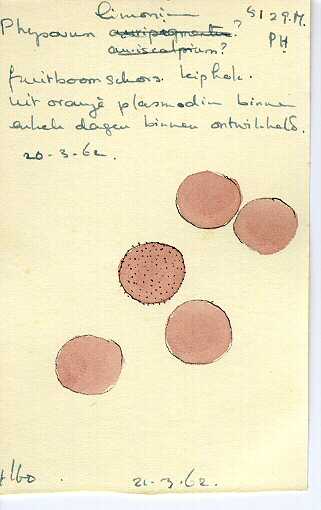 Limonium
Physarum auripigmentum? 5129.M.
auriscalpium? PH
fruitboomschors. Kiphoek.
Uit oranje plasmodium binnen
enkele dagen binnen ontwikkeld.
20-3-62.
21-3-62.